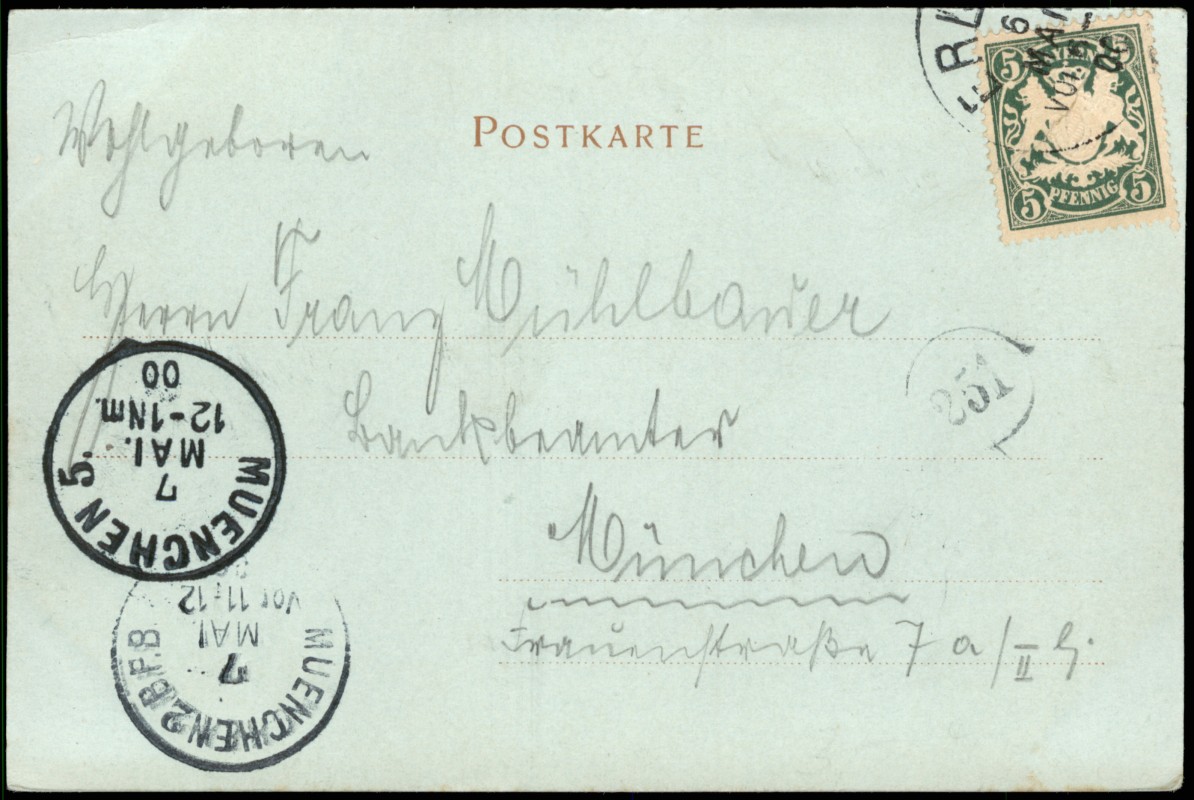 POSTKARTE
Wohlgeboren
Herrn Franz Mühlbauer
Bankbeamter
München
Frauenstraße 7 a/II
6
MAI
VOR
00
BAYERN
5 5
5 PFENNIG 5
251
MUENCHEN 5.
7
MAI.
12-1Nm.
00
MUENCHEN 2.B.P.B
7
MAI.
Vor 11-12